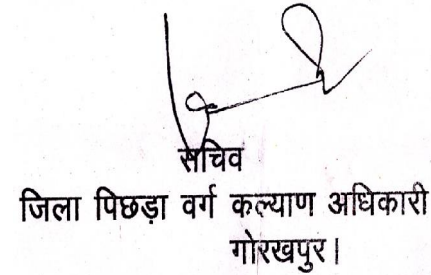 सचिव
जिला पिछड़ा वर्ग कल्याण अधिकारी
गोरखपुर।